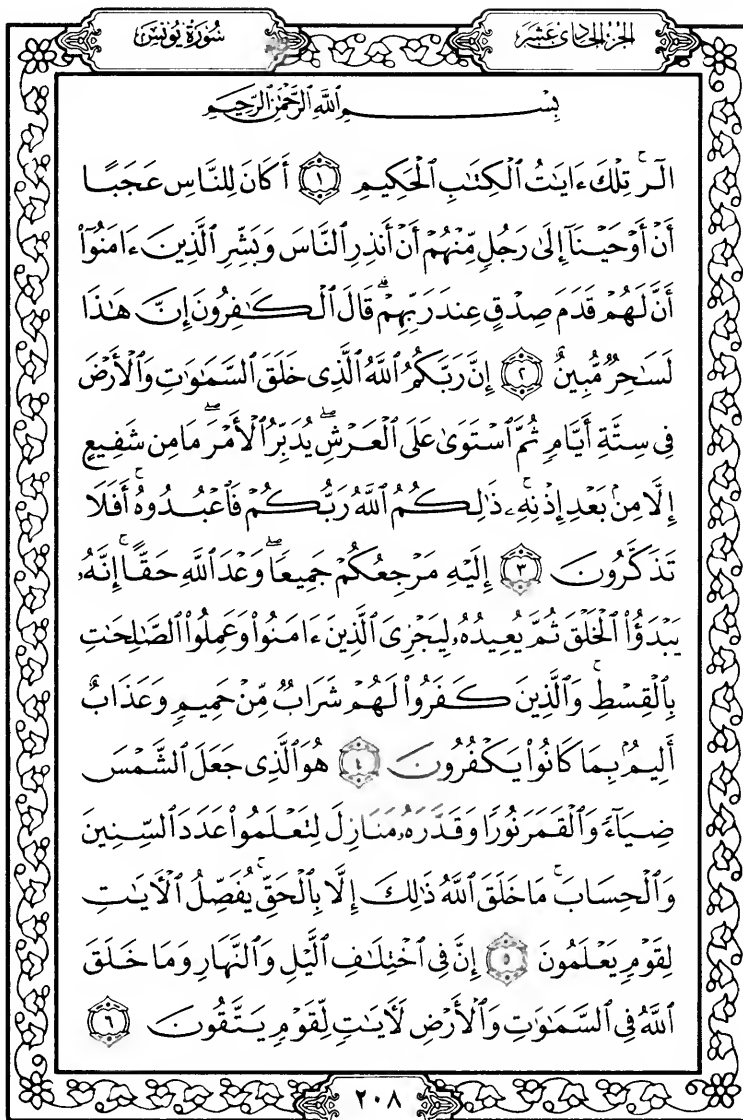 الجزء الحادى عشر
سورة يونس
بِسْمِ ٱللَّهِ ٱلرَّحْمَٰنِ ٱلرَّحِيمِ
الٓرۚ تِلْكَ ءَايَٰتُ ٱلْكِتَٰبِ ٱلْحَكِيمِ ١ أَكَانَ لِلنَّاسِ عَجَبًا
أَنْ أَوْحَيْنَآ إِلَىٰ رَجُلٍ مِّنْهُمْ أَنْ أَنذِرِ ٱلنَّاسَ وَبَشِّرِ ٱلَّذِينَ ءَامَنُوٓا۟
أَنَّ لَهُمْ قَدَمَ صِدْقٍ عِندَ رَبِّهِمْ ۗ قَالَ ٱلْكَٰفِرُونَ إِنَّ هَٰذَا
لَسَٰحِرٌ مُّبِينٌ ٢ إِنَّ رَبَّكُمُ ٱللَّهُ ٱلَّذِى خَلَقَ ٱلسَّمَٰوَٰتِ وَٱلْأَرْضَ
فِى سِتَّةِ أَيَّامٍ ثُمَّ ٱسْتَوَىٰ عَلَى ٱلْعَرْشِ ۖ يُدَبِّرُ ٱلْأَمْرَ ۖ مَا مِن شَفِيعٍ
إِلَّا مِنۢ بَعْدِ إِذْنِهِۦ ۚ ذَٰلِكُمُ ٱللَّهُ رَبُّكُمْ فَٱعْبُدُوهُ ۚ أَفَلَا
تَذَكَّرُونَ ٣ إِلَيْهِ مَرْجِعُكُمْ جَمِيعًا ۖ وَعْدَ ٱللَّهِ حَقًّا ۚ إِنَّهُۥ
يَبْدَؤُا۟ ٱلْخَلْقَ ثُمَّ يُعِيدُهُۥ لِيَجْزِىَ ٱلَّذِينَ ءَامَنُوا۟ وَعَمِلُوا۟ ٱلصَّٰلِحَٰتِ
بِٱلْقِسْطِ ۚ وَٱلَّذِينَ كَفَرُوا۟ لَهُمْ شَرَابٌ مِّنْ حَمِيمٍ وَعَذَابٌ
أَلِيمٌۢ بِمَا كَانُوا۟ يَكْفُرُونَ ٤ هُوَ ٱلَّذِى جَعَلَ ٱلشَّمْسَ
ضِيَآءً وَٱلْقَمَرَ نُورًا وَقَدَّرَهُۥ مَنَازِلَ لِتَعْلَمُوا۟ عَدَدَ ٱلسِّنِينَ
وَٱلْحِسَابَ ۚ مَا خَلَقَ ٱللَّهُ ذَٰلِكَ إِلَّا بِٱلْحَقِّ ۚ يُفَصِّلُ ٱلْءَايَٰتِ
لِقَوْمٍ يَعْلَمُونَ ٥ إِنَّ فِى ٱخْتِلَٰفِ ٱلَّيْلِ وَٱلنَّهَارِ وَمَا خَلَقَ
ٱللَّهُ فِى ٱلسَّمَٰوَٰتِ وَٱلْأَرْضِ لَءَايَٰتٍ لِّقَوْمٍ يَتَّقُونَ ٦
٢٠٨